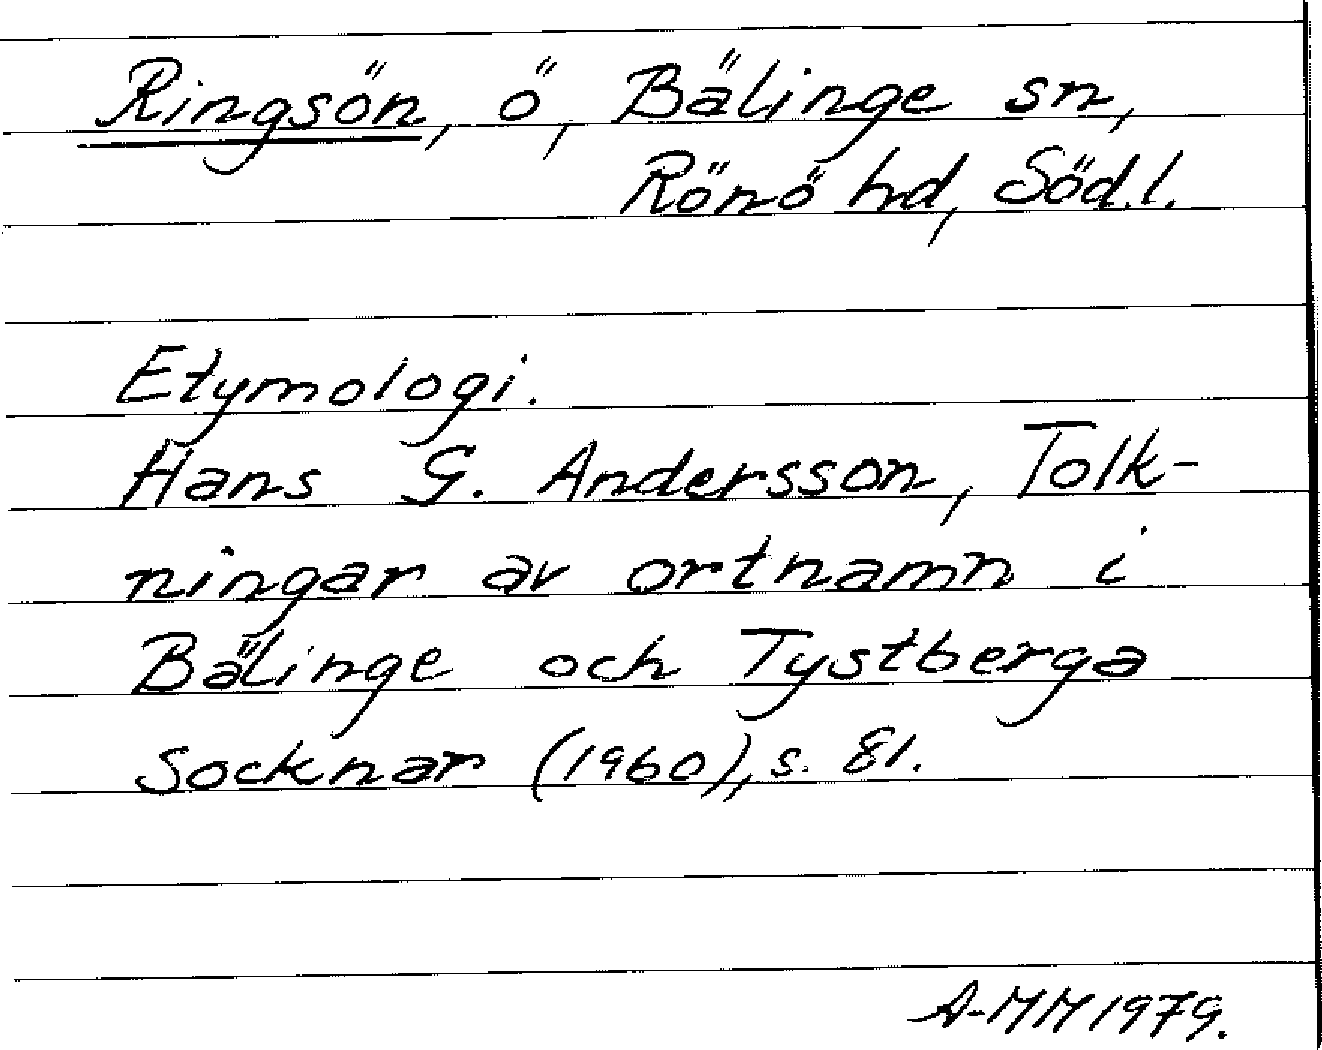 Ringsön, ö, Bälinge sn,
Rönö hd, Södl.
Etymologi.
Hans G. Andersson, Tolk-
ningar av ortnamn i
Bälinge och Tystberga
socknar (1960), s. 81.
A-MM 1979.